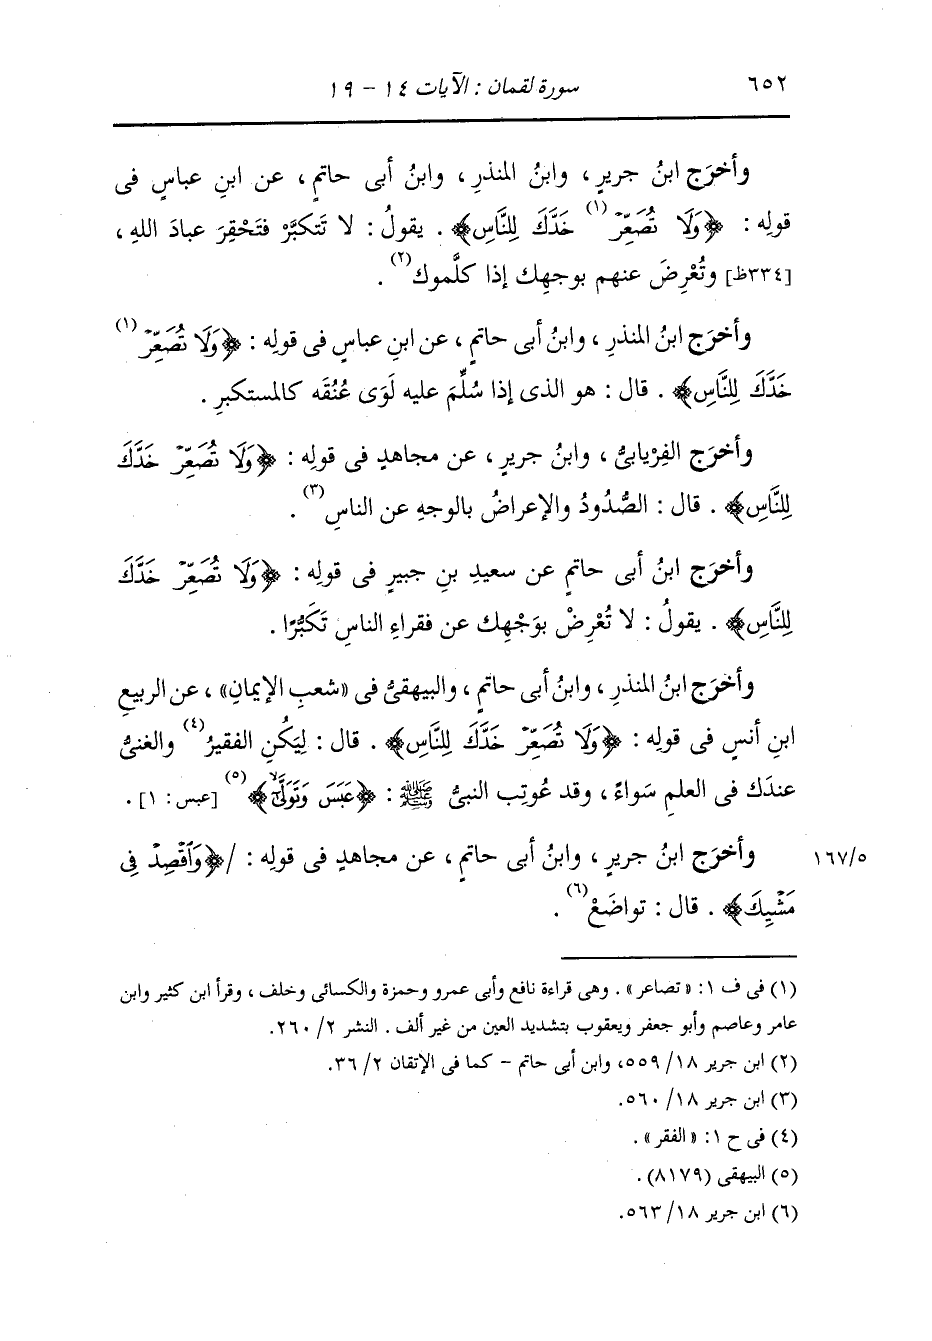 ٦٥٢ سورة لقمان : الآيات ١٤ - ١٩
وأخرَج ابنُ جريرٍ ، وابنُ المنذرِ ، وابنُ أبى حاتمٍ ، عن ابنِ عباسٍ فى
قولِه : ﴿وَلَا تُصَعِّرْ(١) خَدَّكَ لِلنَّاسِ﴾ . يقولُ : لا تَتكبَّرْ فتَحْقِرَ عبادَ اللهِ ،
[٣٣٤ظ] وتُعْرِضَ عنهم بوجهِك إذا كلَّموك(٢) .
وأخرَج ابنُ المنذرِ ، وابنُ أبى حاتمٍ ، عن ابنِ عباسٍ فى قولِه : ﴿وَلَا تُصَعِّرْ(١)
خَدَّكَ لِلنَّاسِ﴾ . قال : هو الذى إذا سُلِّمَ عليه لَوَى عُنُقَه كالمستكبرِ .
وأخرَج الفِرْيابىُّ ، وابنُ جريرٍ ، عن مجاهدٍ فى قولِه : ﴿وَلَا تُصَعِّرْ خَدَّكَ
لِلنَّاسِ﴾ . قال : الصُّدُودُ والإعراضُ بالوجهِ عن الناسِ(٣) .
وأخرَج ابنُ أبى حاتمٍ عن سعيدِ بنِ جبيرٍ فى قولِه : ﴿وَلَا تُصَعِّرْ خَدَّكَ
لِلنَّاسِ﴾ . يقولُ : لا تُعْرِضْ بوَجْهِك عن فقراءِ الناسِ تَكَبُّرًا .
وأخرَج ابنُ المنذرِ ، وابنُ أبى حاتمٍ ، والبيهقىُّ فى «شعبِ الإيمانِ» ، عن الربيعِ
ابنِ أنسٍ فى قولِه : ﴿وَلَا تُصَعِّرْ خَدَّكَ لِلنَّاسِ﴾ . قال : لِيَكُنِ الفقيرُ(٤) والغنىُّ
عندَك فى العلمِ سَواءً ، وقد عُوتِب النبىُّ ﷺ : ﴿عَبَسَ وَتَوَلَّىٰٓ﴾(٥) [عبس : ١] .
وأخرَج ابنُ جريرٍ ، وابنُ أبى حاتمٍ ، عن مجاهدٍ فى قولِه : /﴿وَٱقْصِدْ فِى ١٦٧/٥
مَشْيِكَ﴾ . قال : تواضَعْ(٦) .
(١) فى ف ١: «تصاعر» . وهى قراءة نافع وأبى عمرو وحمزة والكسائى وخلف ، وقرأ ابن كثير وابن
عامر وعاصم وأبو جعفر ويعقوب بتشديد العين من غير ألف . النشر ٢/ ٢٦٠.
(٢) ابن جرير ١٨/ ٥٥٩، وابن أبى حاتم - كما فى الإتقان ٢/ ٣٦.
(٣) ابن جرير ١٨/ ٥٦٠.
(٤) فى ح ١: «الفقر» .
(٥) البيهقى (٨١٧٩) .
(٦) ابن جرير ١٨/ ٥٦٣.